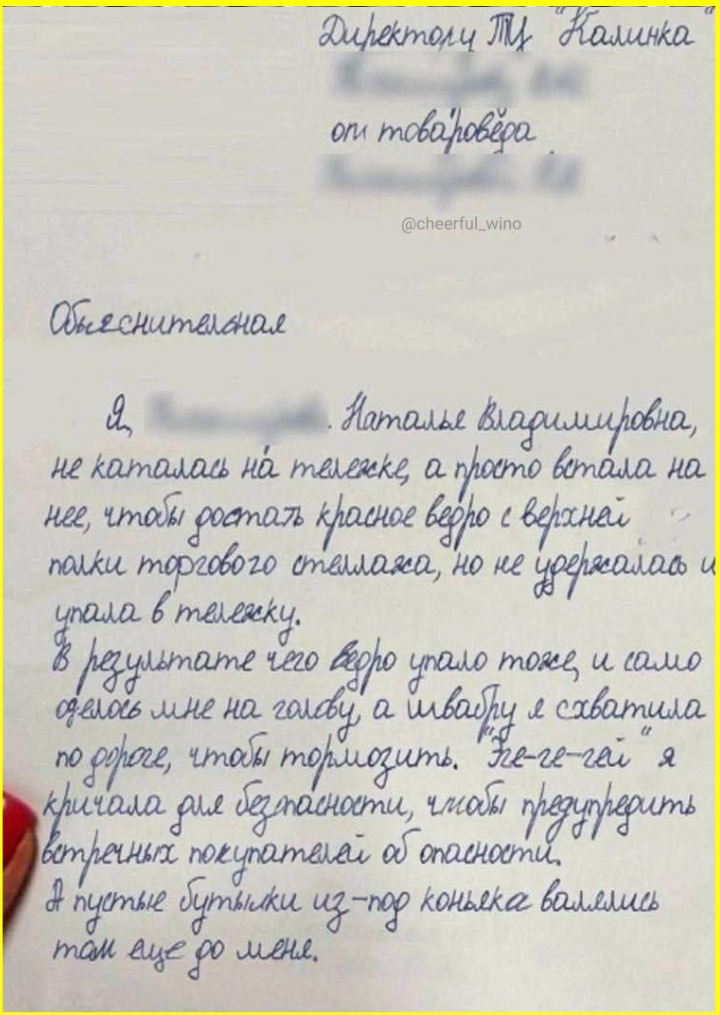 Директору ТЦ "Калинка"
от товароведа
@cheerful_wino
Объяснительная
Я, Наталья Владимировна,
не каталась на тележке, а просто встала на
нее, чтобы достать красное ведро с верхней
полки торгового стеллажа, но не удержалась и
упала в тележку.
В результате чего ведро упало тоже, и само
оделось мне на голову, а швабру я схватила
по дороге, чтобы тормозить. "Эге-ге-гей" я
кричала для безопасности, чтобы предупредить
встречных покупателей об опасности.
А пустые бутылки из-под коньяка валялись
там еще до меня.